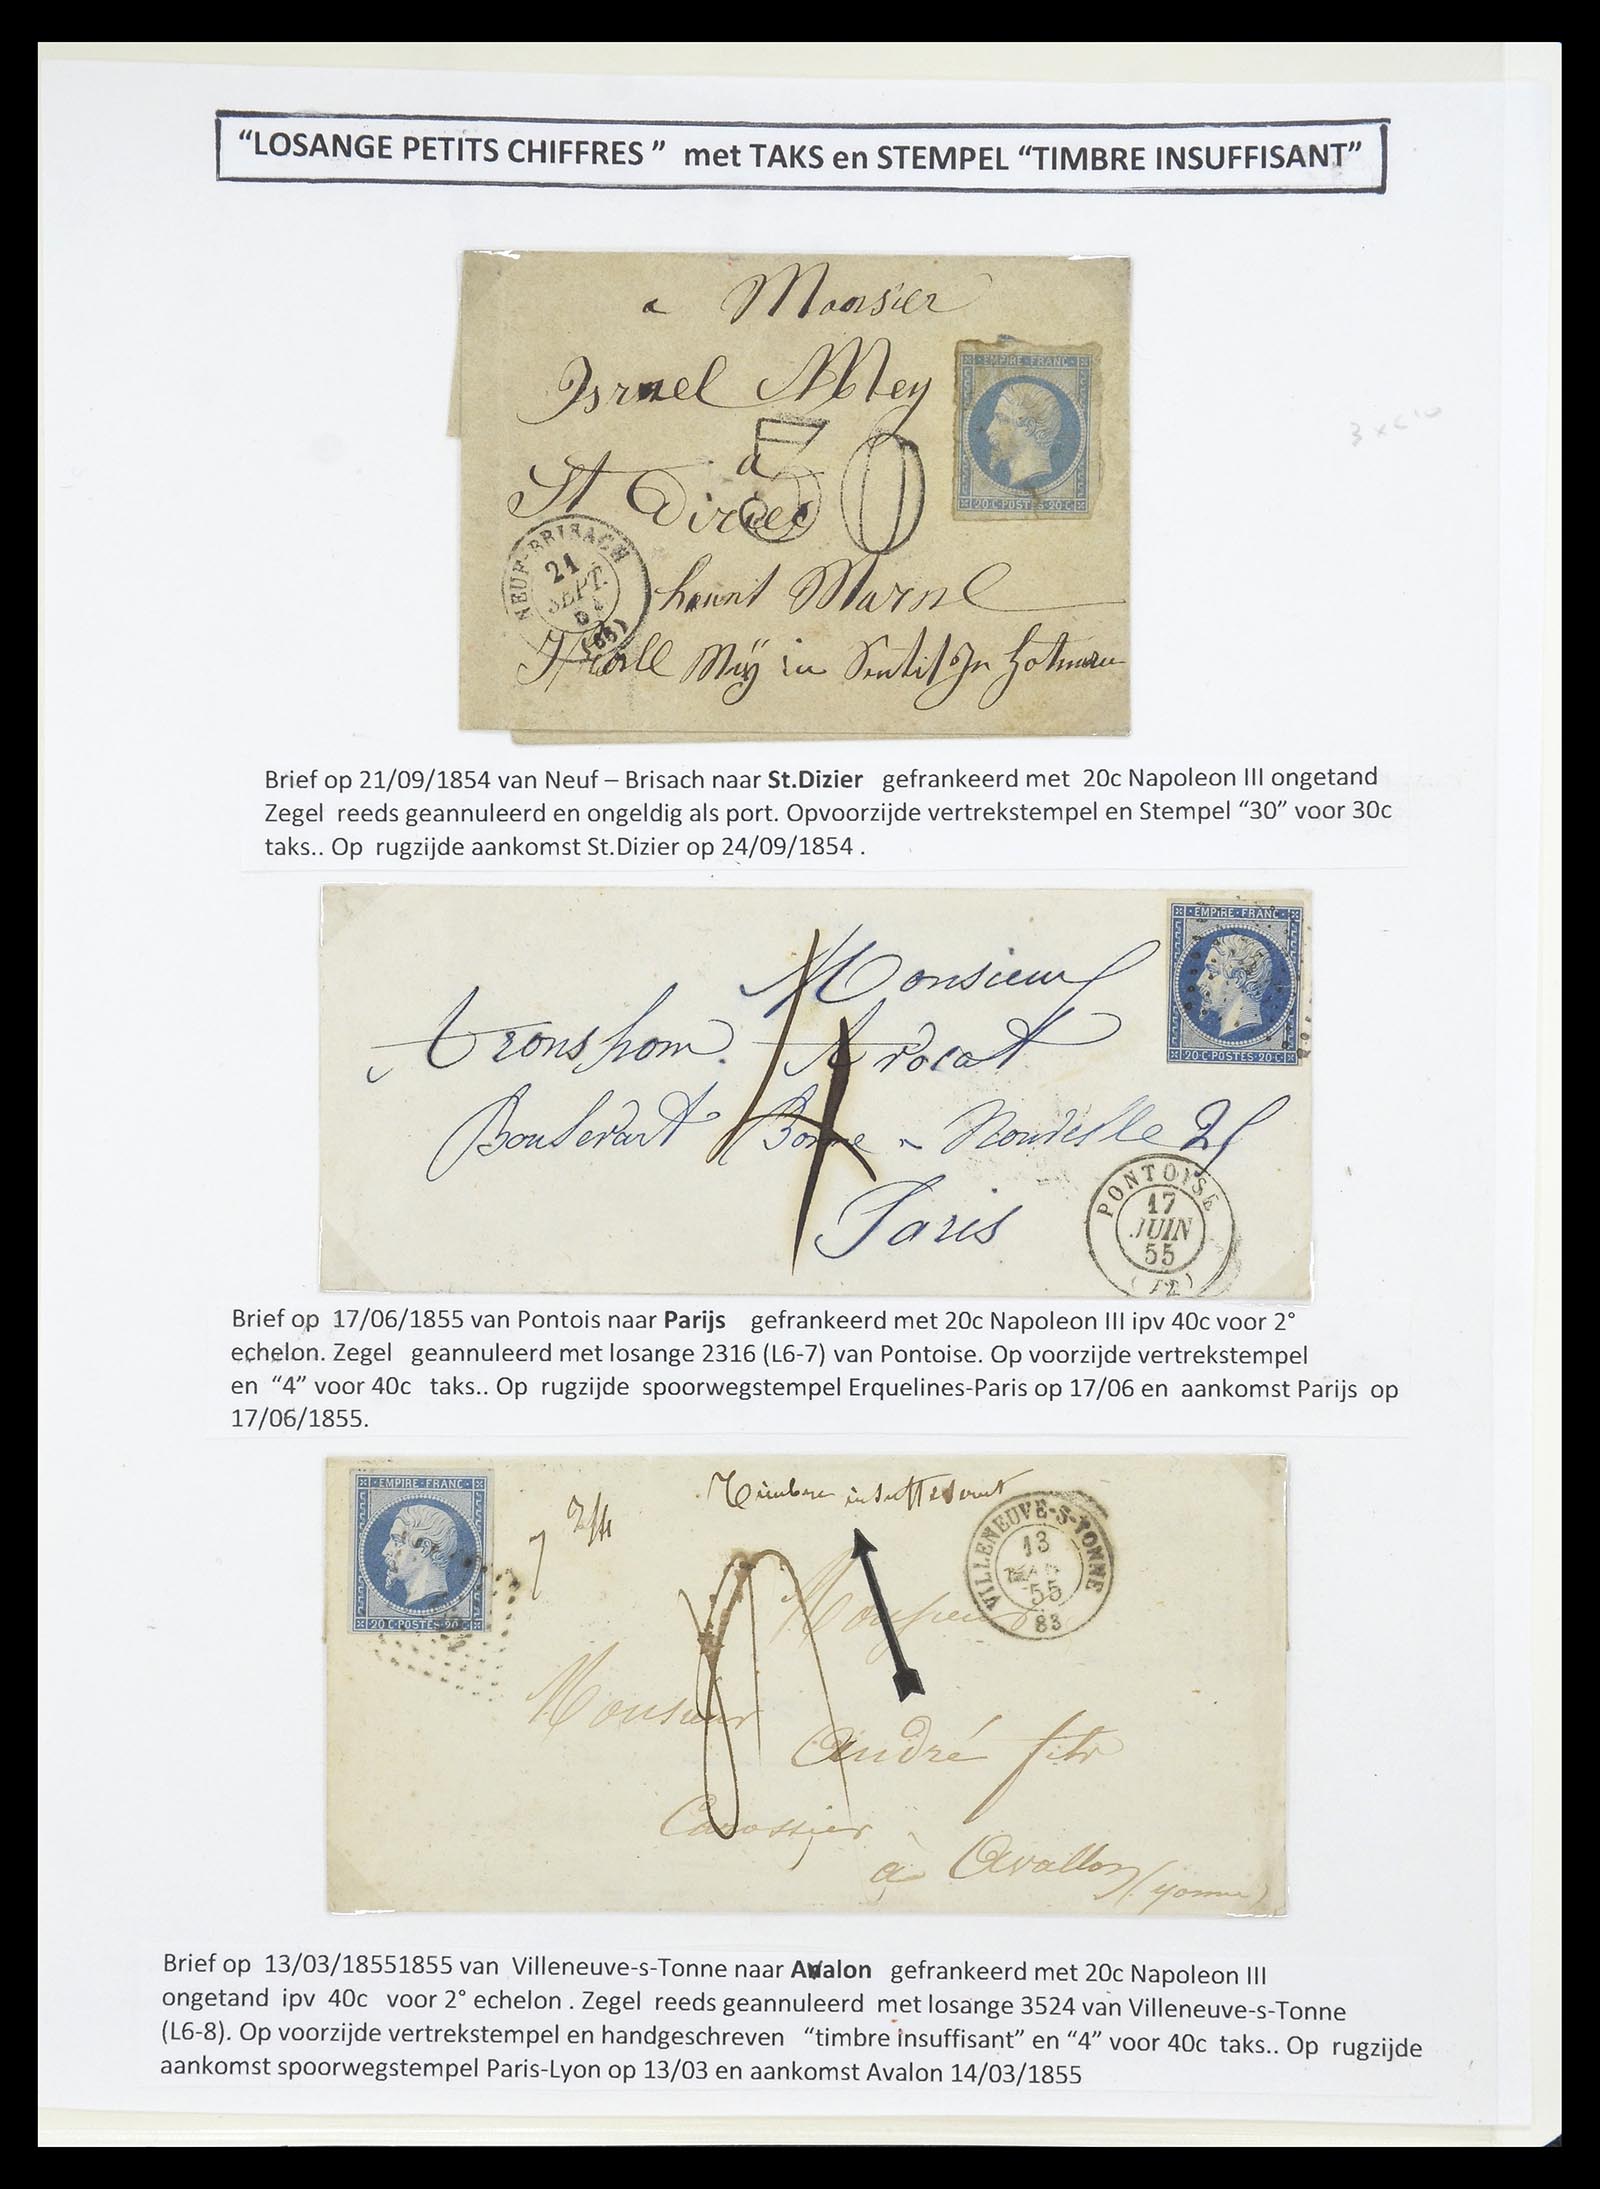 “LOSANGE PETITS CHIFFRES ” met TAKS en STEMPEL “TIMBRE INSUFFISANT”
a Monsier
Isrnel
EMPIRE FRANC
20 C POSTES 20 C
30
a
St Dizier
NEUF-BRISACH
21
SEPT.
(66)
haunt Marne
Brief op 21/09/1854 van Neuf – Brisach naar St.Dizier gefrankeerd met 20c Napoleon III ongetand
Zegel reeds geannuleerd en ongeldig als port. Opvoorzijde vertrekstempel en Stempel “30” voor 30c
taks.. Op rugzijde aankomst St.Dizier op 24/09/1854 .
EMPIRE FRANC
20 C POSTES 20 C
Monsieur
Avocat
Boulevart Bonne - Nouvelle 25
Paris
4
PONTOISE
17
JUIN
55
(72)
Brief op 17/06/1855 van Pontois naar Parijs gefrankeerd met 20c Napoleon III ipv 40c voor 2°
echelon. Zegel geannuleerd met losange 2316 (L6-7) van Pontoise. Op voorzijde vertrekstempel
en “4” voor 40c taks.. Op rugzijde spoorwegstempel Erquelines-Paris op 17/06 en aankomst Parijs op
17/06/1855.
EMPIRE FRANC
20 C POSTES 20 C
Timbre insuffisant
VILLENEUVE-S-YONNE
13
MARS
55
83
Monsieur
Monsieur
André fils
Carossier
à Avallon (yonne)
Brief op 13/03/18551855 van Villeneuve-s-Tonne naar Avalon gefrankeerd met 20c Napoleon III
ongetand ipv 40c voor 2° echelon . Zegel reeds geannuleerd met losange 3524 van Villeneuve-s-Tonne
(L6-8). Op voorzijde vertrekstempel en handgeschreven “timbre insuffisant” en “4” voor 40c taks.. Op rugzijde
aankomst spoorwegstempel Paris-Lyon op 13/03 en aankomst Avalon 14/03/1855